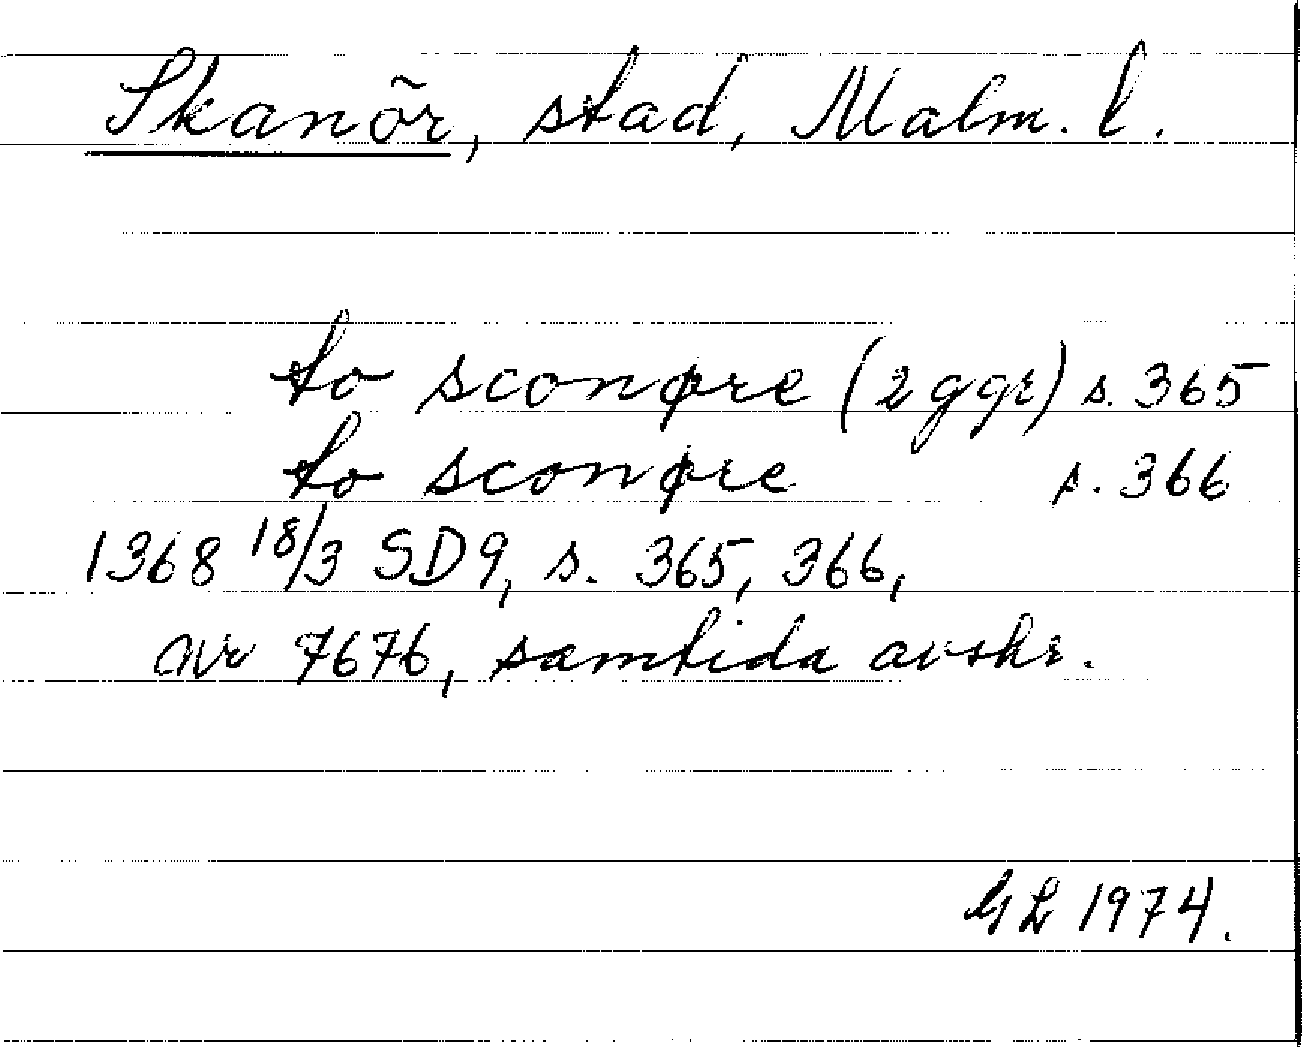 Skanör, stad, Malm. l.
to sconøre (2 ggr) s. 365
to sconøre s. 366
1368 18/3 SD9, s. 365, 366,
nr 7676, samtida avskr.
GL 1974.